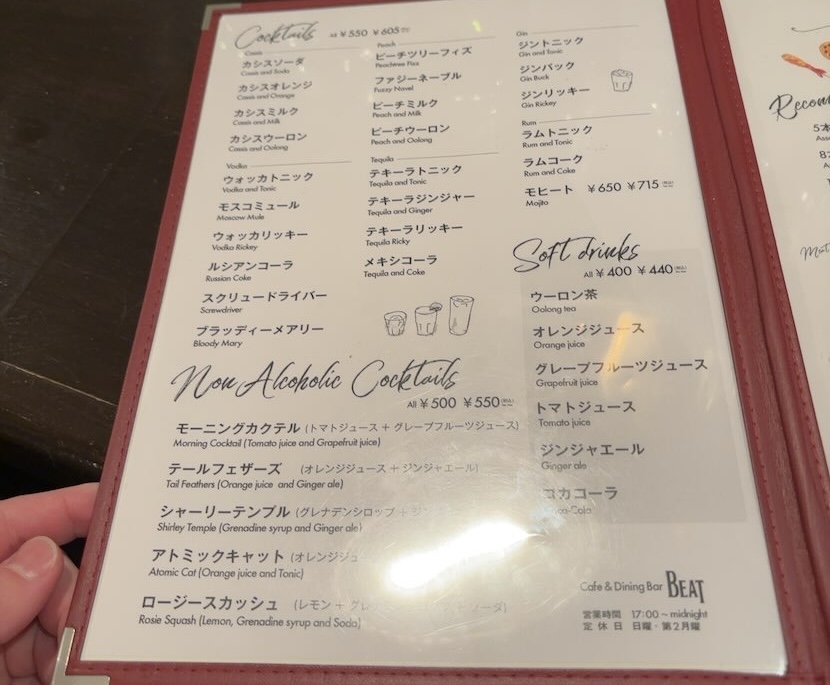 Cocktails All ¥550 ¥605
Cassis
カシスソーダ
Cassis and Soda
カシスオレンジ
Cassis and Orange
カシスミルク
Cassis and Milk
カシスウーロン
Cassis and Oolong
Vodka
ウォッカトニック
Vodka and Tonic
モスコミュール
Moscow Mule
ウォッカリッキー
Vodka Rickey
ルシアンコーラ
Russian Coke
スクリュードライバー
Screwdriver
ブラッディーメアリー
Bloody Mary
Peach
ピーチツリーフィズ
Peachtree Fizz
ファジーネーブル
Fuzzy Navel
ピーチミルク
Peach and Milk
ピーチウーロン
Peach and Oolong
Tequila
テキーラトニック
Tequila and Tonic
テキーラジンジャー
Tequila and Ginger
テキーラリッキー
Tequila Ricky
メキシコーラ
Tequila and Coke
Gin
ジントニック
Gin and Tonic
ジンバック
Gin Buck
ジンリッキー
Gin Rickey
Rum
ラムトニック
Rum and Tonic
ラムコーク
Rum and Coke
モヒート ¥650 ¥715
Mojito
Soft drinks
All ¥400 ¥440
ウーロン茶
Oolong tea
オレンジジュース
Orange juice
グレープフルーツジュース
Grapefruit juice
トマトジュース
Tomato juice
ジンジャエール
Ginger ale
コカコーラ
Coca-Cola
Non Alcoholic Cocktails
All ¥500 ¥550
モーニングカクテル (トマトジュース + グレープフルーツジュース)
Morning Cocktail (Tomato juice and Grapefruit juice)
テールフェザーズ (オレンジジュース + ジンジャエール)
Tail Feathers (Orange juice and Ginger ale)
シャーリーテンプル (グレナデンシロップ +
Shirley Temple (Grenadine syrup and Ginger ale)
アトミックキャット (オレンジジュ
Atomic Cat (Orange juice and Tonic)
ロージースカッシュ (レモン + グレ ソーダ)
Rosie Squash (Lemon, Grenadine syrup and Soda)
Cafe & Dining Bar BEAT
営業時間 17:00～midnight
定休日 日曜・第2月曜